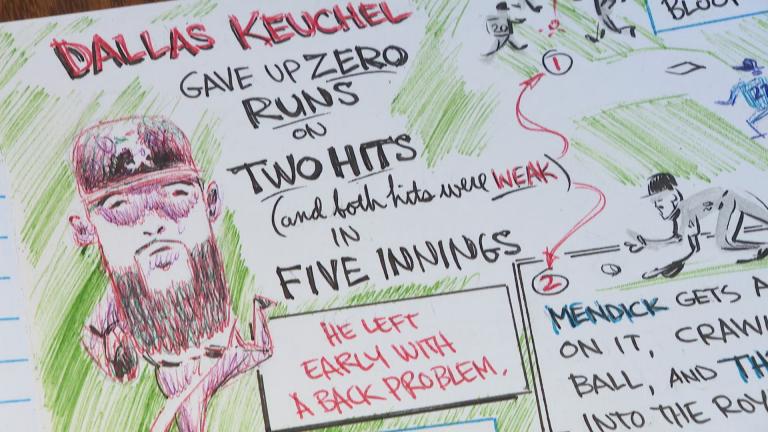 DALLAS KEUCHEL
GAVE UP ZERO
RUNS
ON
TWO HITS
(and both hits were WEAK)
IN
FIVE INNINGS
HE LEFT
EARLY WITH
A BACK PROBLEM.
1
2
MENDICK GETS A
ON IT, CRAWL
BALL, AND TH
INTO THE ROY